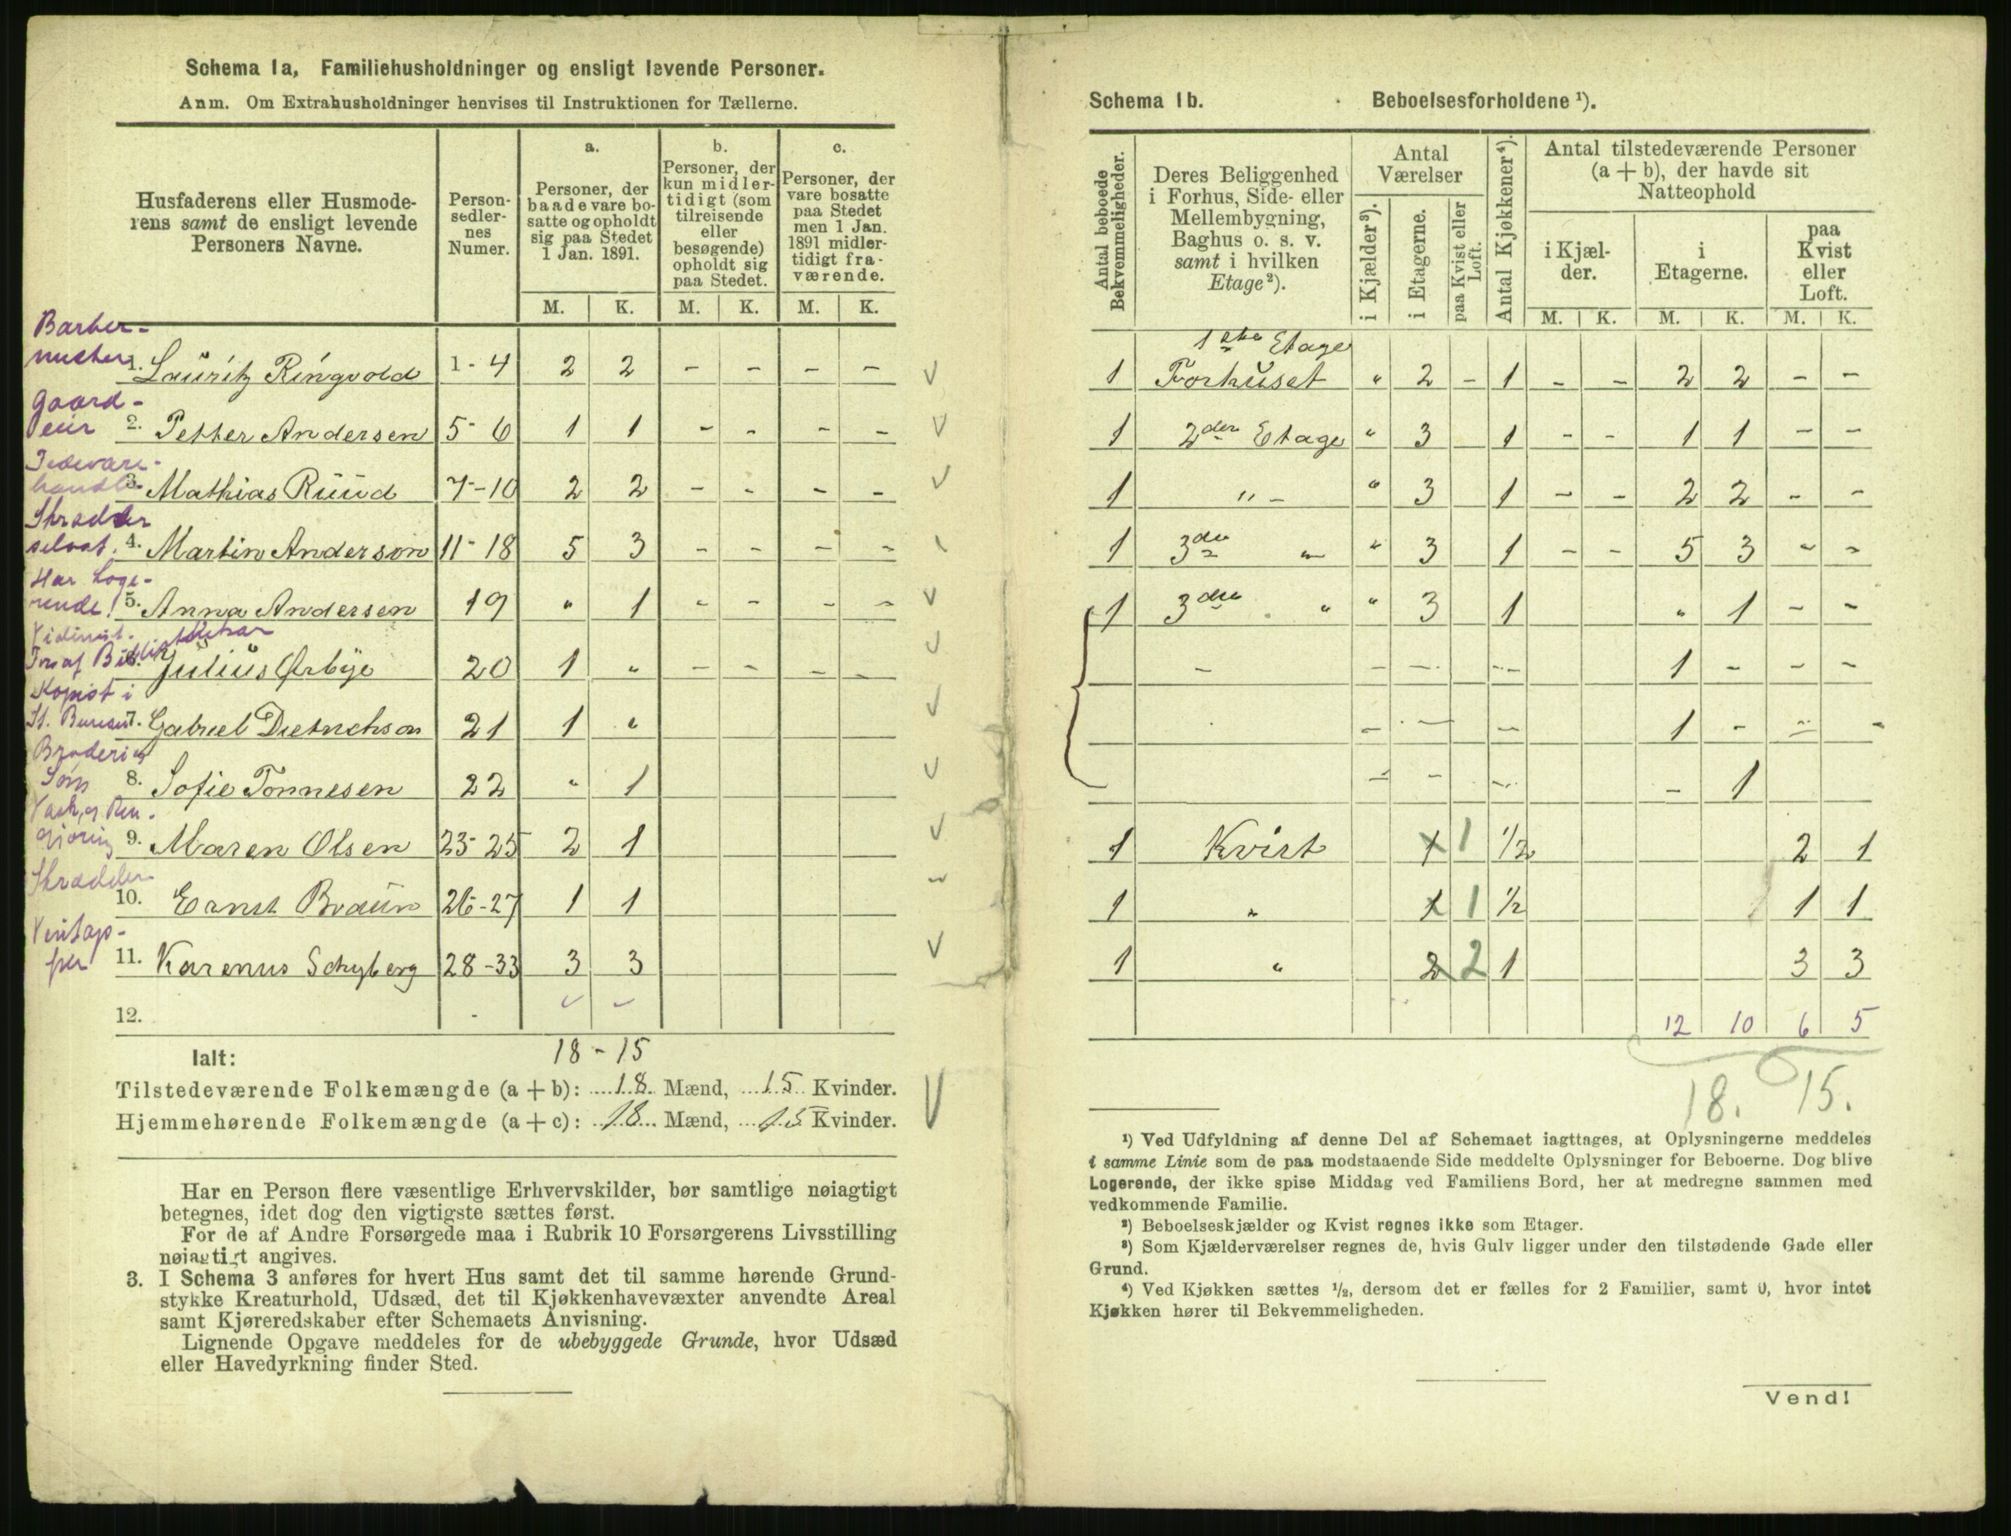 Schema 1a, Familiehusholdninger og ensligt levende Personer.
Anm. Om Extrahusholdninger henvises til Instruktionen for Tællerne.
Husfaderens eller Husmoderens samt de ensligt levende Personers Navne.
Personsedlernes Numer.
a. Personer, der baade vare bosatte og opholdt sig paa Stedet 1 Jan. 1891.
b. Personer, der kun midlertidigt (som tilreisende eller besøgende) opholdt sig paa Stedet.
c. Personer, der vare bosatte paa Stedet men 1 Jan. 1891 midlertidigt fraværende.
M. K. M. K. M. K.
Barbermester 1. Lauritz Ringvold 1-4 2 2 - - - -
Gaardeier 2. Petter Andersen 5-6 1 1 - - - -
3. Mathias Ruud 7-10 2 2 - - - -
Skrædder 4. Martin Anderson 11-18 5 3 - - - -
Har Logerende! 5. Anna Andersen 19 " 1 - - - -
6. Julius Ørbye 20 1 " - - - -
Kopist i St. Bureau 7. Gabriel Dietrichson 21 1 "
Broderi og Søm 8. Sofie Tonnesen 22 " 1
Vask, og Rengjøring 9. Maren Olsen 23-25 2 1
Skrædder 10. Ernst Braun 26-27 1 1
Vintapper 11. Karenus Schyberg 28-33 3 3
12.
Ialt: 18 - 15
Tilstedeværende Folkemængde (a + b): 18 Mænd, 15 Kvinder.
Hjemmehørende Folkemængde (a + c): 18 Mænd, 15 Kvinder.
Har en Person flere væsentlige Erhvervskilder, bør samtlige nøiagtigt
betegnes, idet dog den vigtigste sættes først.
For de af Andre Forsørgede maa i Rubrik 10 Forsørgerens Livsstilling
nøiagtigt angives.
3. I Schema 3 anføres for hvert Hus samt det til samme hørende Grund-
stykke Kreaturhold, Udsæd, det til Kjøkkenhavevæxter anvendte Areal
samt Kjøreredskaber efter Schemaets Anvisning.
Lignende Opgave meddeles for de ubebyggede Grunde, hvor Udsæd
eller Havedyrkning finder Sted.
Schema 1b. Beboelsesforholdene ¹).
Antal beboede Bekvemmeligheder.
Deres Beliggenhed i Forhus, Side- eller Mellembygning, Baghus o. s. v. samt i hvilken Etage²).
Antal Værelser
i Kjælder³).
i Etagerne.
paa Kvist eller Loft.
Antal Kjøkkener⁴).
Antal tilstedeværende Personer (a + b), der havde sit Natteophold
i Kjælder.
i Etagerne.
paa Kvist eller Loft.
M. K. M. K. M. K.
1ste Etage
1 Forhuset " 2 - 1 - - 2 2 - -
1 2den Etage " 3 1 - - 1 1 - -
1 " - " 3 1 - - 2 2 - -
1 3die " " 3 1 - - 5 3 - -
1 3die " " 3 1 " 1 - -
- - - - 1 - - -
- - - 1 - - -
- - - - 1
1 Kvist 1 1 1/2 2 1
1 " 1 1 1/2 1 1
1 " 2 2 1 3 3
12 10 6 5
18. 15.
¹) Ved Udfyldning af denne Del af Schemaet iagttages, at Oplysningerne meddeles
i samme Linie som de paa modstaaende Side meddelte Oplysninger for Beboerne. Dog blive
Logerende, der ikke spise Middag ved Familiens Bord, her at medregne sammen med
vedkommende Familie.
²) Beboelseskjælder og Kvist regnes ikke som Etager.
³) Som Kjælderværelser regnes de, hvis Gulv ligger under den tilstødende Gade eller
Grund.
⁴) Ved Kjøkken sættes ½, dersom det er fælles for 2 Familier, samt 0, hvor intet
Kjøkken hører til Bekvemmeligheden.
Vend!